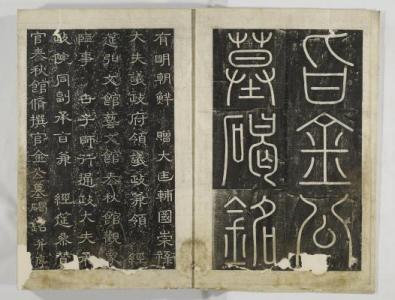 旨金公
墓碣銘
有明朝鮮 贈大匡輔國崇祿
大夫議政府領議政兼領 經
筵弘文館藝文館春秋館觀象
監事 世子師行通政大夫承
政院同副承旨兼 經筵參贊
官春秋館脩撰官金公墓碣銘并序